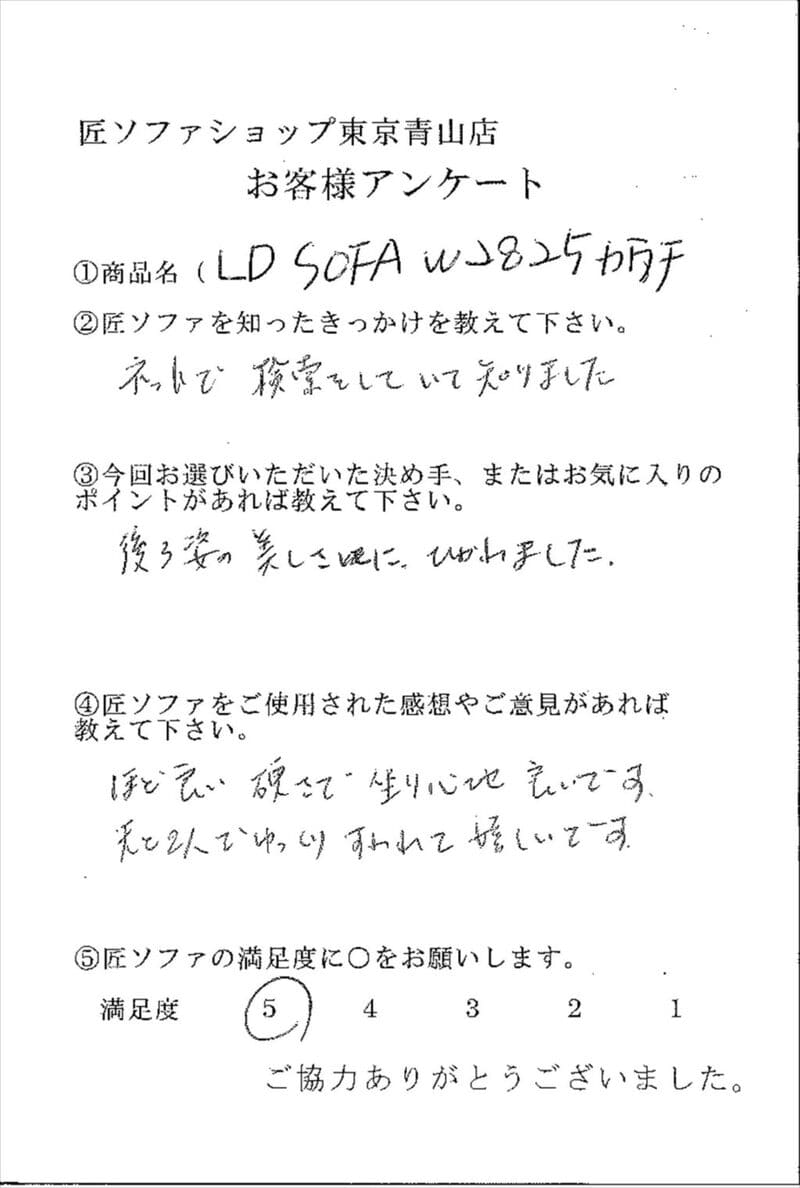 匠ソファショップ東京青山店
お客様アンケート
①商品名（LD SOFA W2825カウチ
②匠ソファを知ったきっかけを教えて下さい。
ネットで検索をしていて知りました
③今回お選びいただいた決め手、またはお気に入りの
ポイントがあれば教えて下さい。
後ろ姿の美しさに、ひかれました.
④匠ソファをご使用された感想やご意見があれば
教えて下さい。
ほど良い硬さで座り心地良いです.
夫と2人でゆっくりすわれて嬉しいです.
⑤匠ソファの満足度に〇をお願いします。
満足度 5 4 3 2 1
ご協力ありがとうございました。